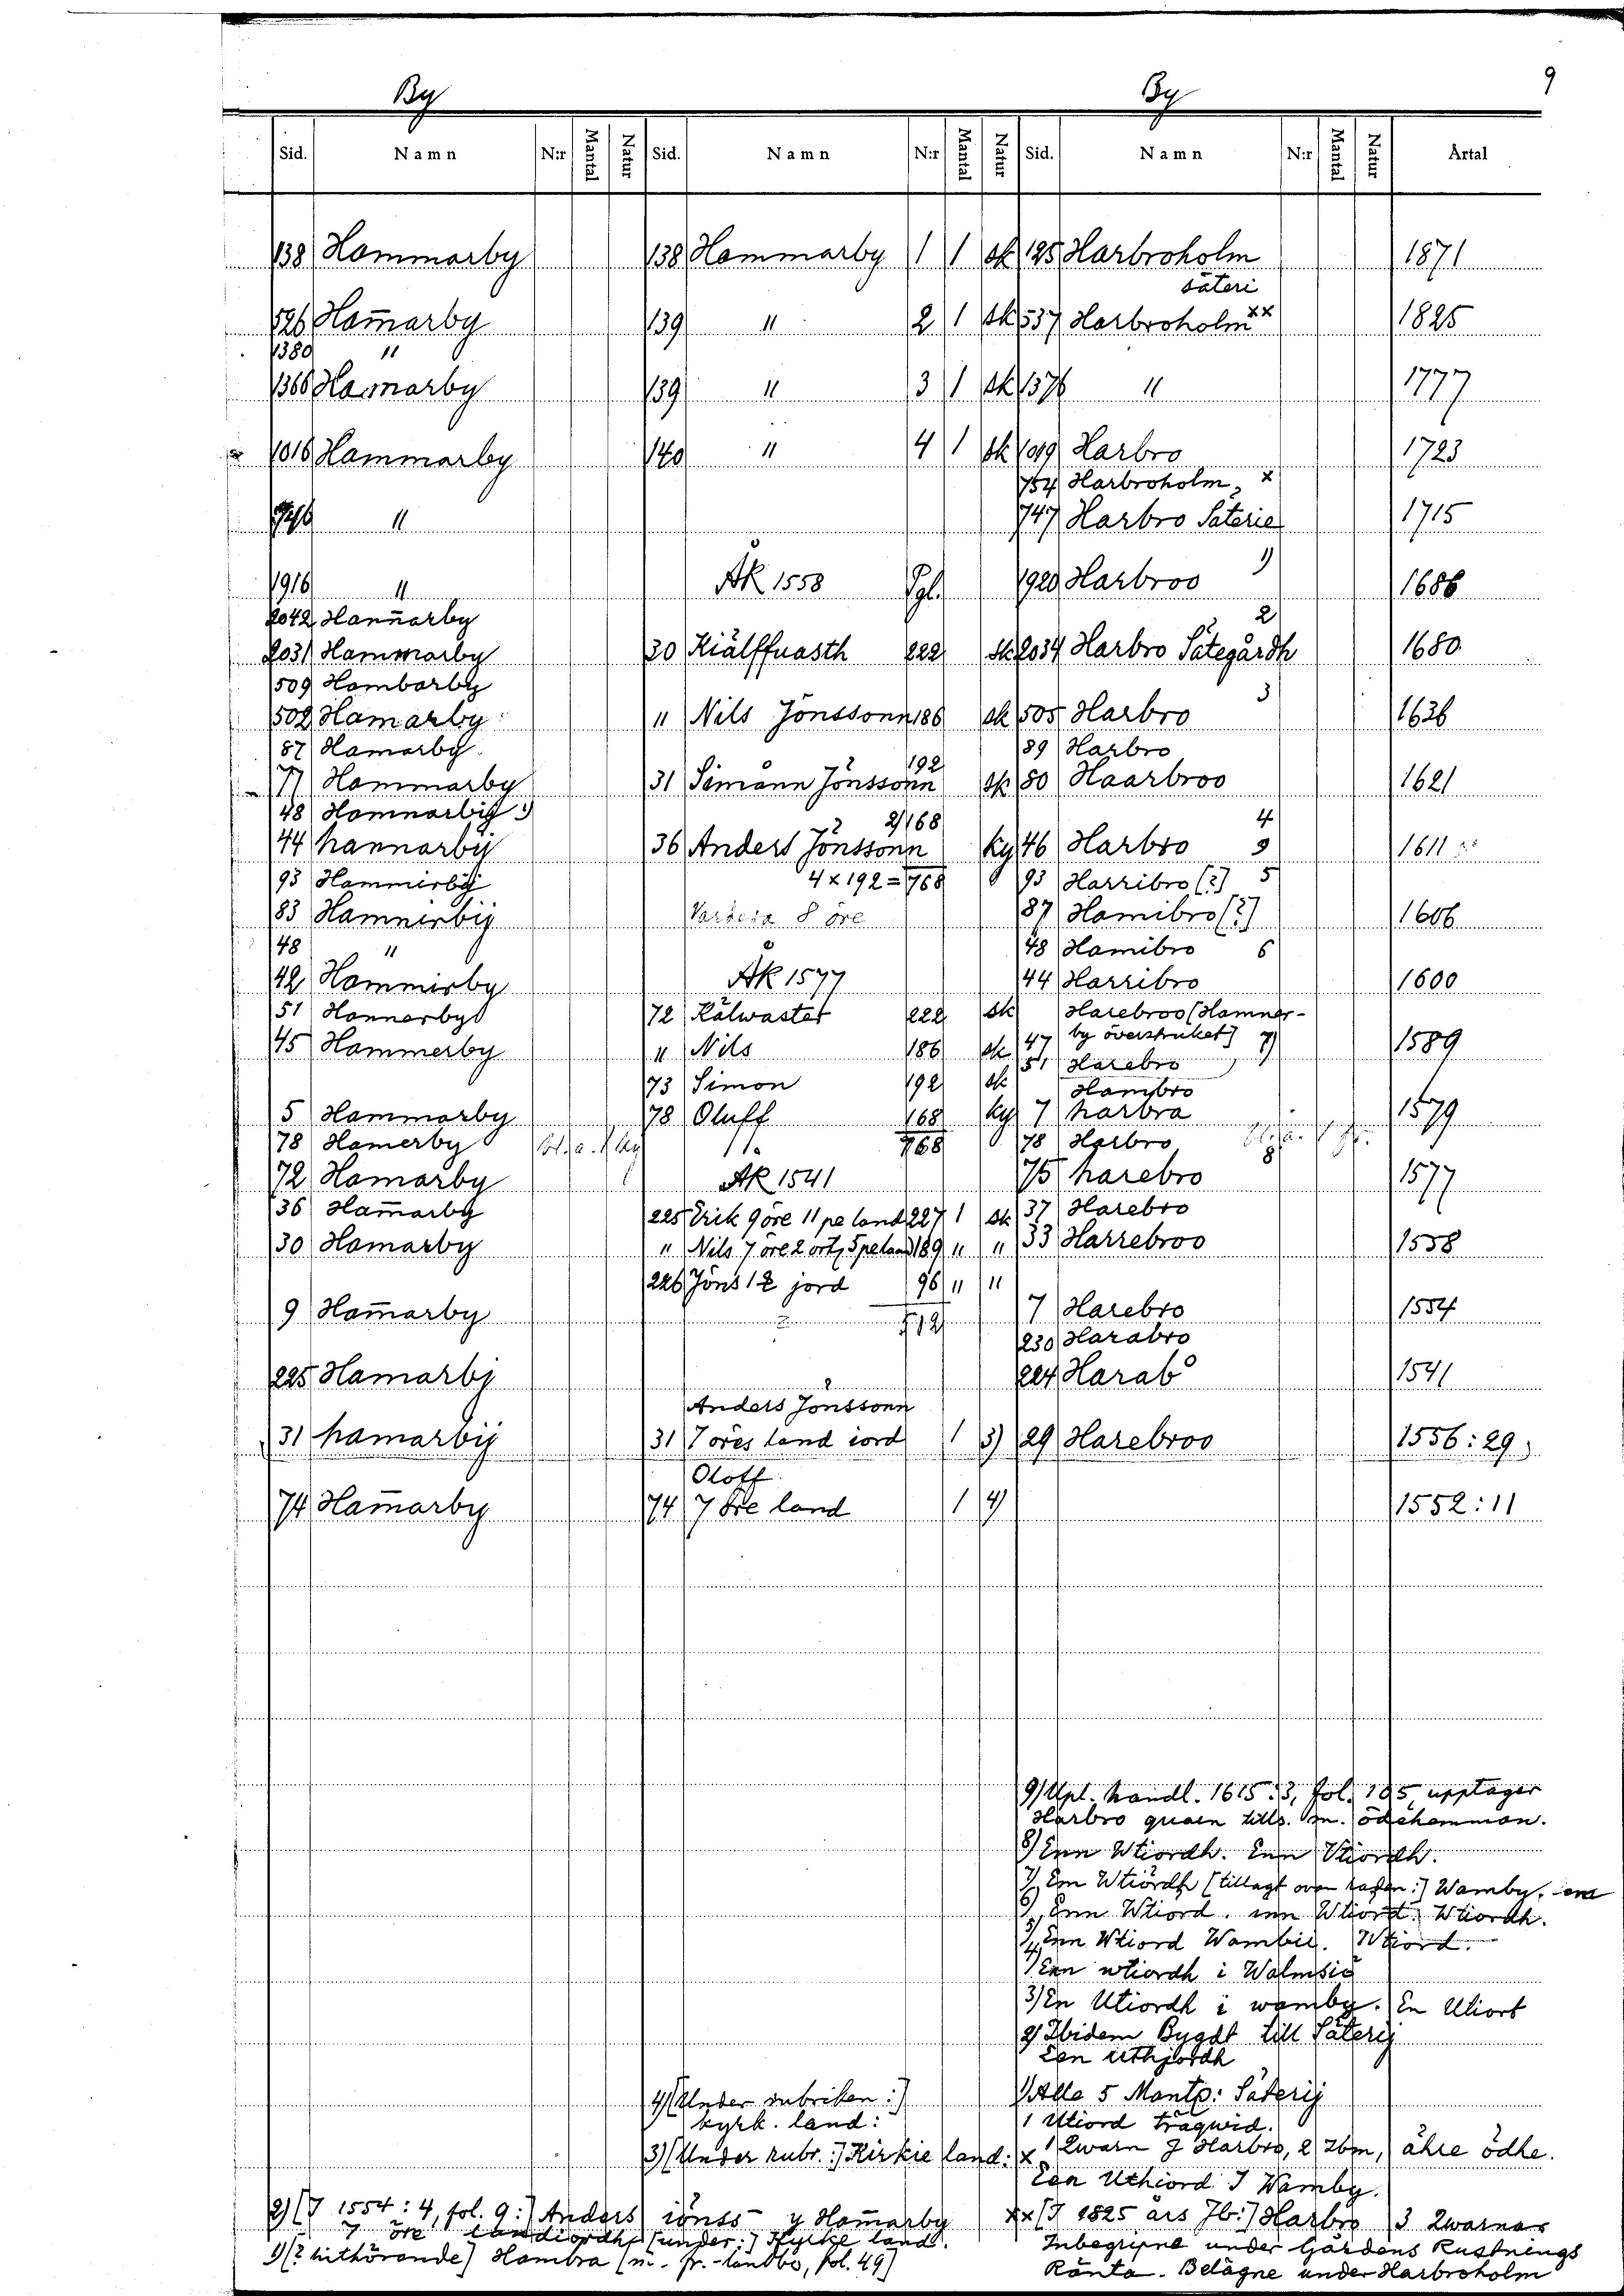 9
By By
Sid. Namn N:r Mantal Natur Sid. Namn N:r Mantal Natur Sid. Namn N:r Mantal Natur Årtal
138 Hammarby 138 Hammarby 1 1 sk 125 Harbroholm 1871
säteri
526 Ham̄arby 139 " 2 1 sk 537 Harbroholm xx 1825
1380 "
1366 Hamarby 139 " 3 1 sk 1376 " 1777
1016 Hammarby 140 " 4 1 sk 1019 Harbro 1723
754 Harbroholm, x
746 " 747 Harbro Säterie 1715
1916 " ÅK 1558 Pgl. 1920 Harbroo 1) 1686
2042 Han̄arby 2
2031 Hammarby 30 Kiälffuasth 222 sk 2034 Harbro Sätegårdh 1680
509 Hombarby 3
502 Hamarby " Nils Jönssonn 186 sk 505 Harbro 1636
87 Hamarby 89 Harbro
77 Hammarby 31 Simånn Jönssonn 192 sk 80 Haarbroo 1621
48 Hamnarbij 1) 2/168 4
44 hannarbij 36 Anders Jönssonn ky 46 Harbro 9 1611
93 Hammirbij 4 x 192 = 768 93 Harribro [?] 5
83 Hamnirbij Vardera 8 öre 87 Hamibro [?] 1606
48 " 48 Hamibro 6
42 Hammirby ÅK 1577 44 Harribro 1600
51 Hannarby 72 Kälwaster 222 sk Harebroo [Hamner-
45 Hammerby " Nils 186 sk 47 by överstruket] 7) 1589
51 Harebro
73 Simon 192 sk Hambro
5 Hammarby 78 Oluff 168 ky 7 harbra 1579
78 Hamerby Bl. a. 1 ky 768 78 Harbro Bl. a. 1 fr.
72 Hamarby ÅK 1541 75 harebro 8 1577
36 Ham̄arby 225 Erik 9 öre 11 pe land 227 1 sk 37 Harebro
30 Hamarby " Nils 7 öre 2 ört 5 pe land 189 " " 33 Harrebroo 1558
226 Jöns 1/2 jord 96 " "
9 Ham̄arby 512 7 Harebro 1554
230 Harabro
225 Hamarbj 224 Harab° 1541
Anders Jönssonn
31 hamarbij 31 7 öres land iord 1 3) 29 Harebroo 1556:29
Oloff
74 Ham̄arby 74 7 öre land 1 4) 1552:11
9) Upl. handl. 1615:3, fol. 105, upptager
Harbro quarn tills. m. ödehemman.
8) Enn Wtiordh. Enn Vtiordh.
7) Em Wtiördh [tillagt ovan raden:] Wamby.
6) Enn Wtiord. inn Wtiord. Wtiordh.
5) Enn Wtiord Wambii. Wtiord.
4) Enn wtiordh i Walmsiö
3) En Utiordh i wamby. En Utiort
2) Ibidem Bygdt till Säterij
Een uthjordh
1) Alla 5 Mantp: Säterij
1 Utiord träqwid.
4) [Under rubriken:]
kyrk. land:
3) [Under rubr.:] Kirkie land:
x 1 Qwarn J Harbro, 2 Ibm, ähre ödhe.
Een Uthiord J Wamby.
2) [J 1554:4, fol. 9:] Anders iönss̄ y Ham̄arby
7 öre landiordhe [under:] Kyrke land.
1) [? hithörande] Hambra [m. fr.-landbo, fol. 49]
xx [J 1825 års Jb:] Harbro 3 Qwarnar
Inbegripne under Gårdens Rustnings
Ränta. Belägne under Harbroholm